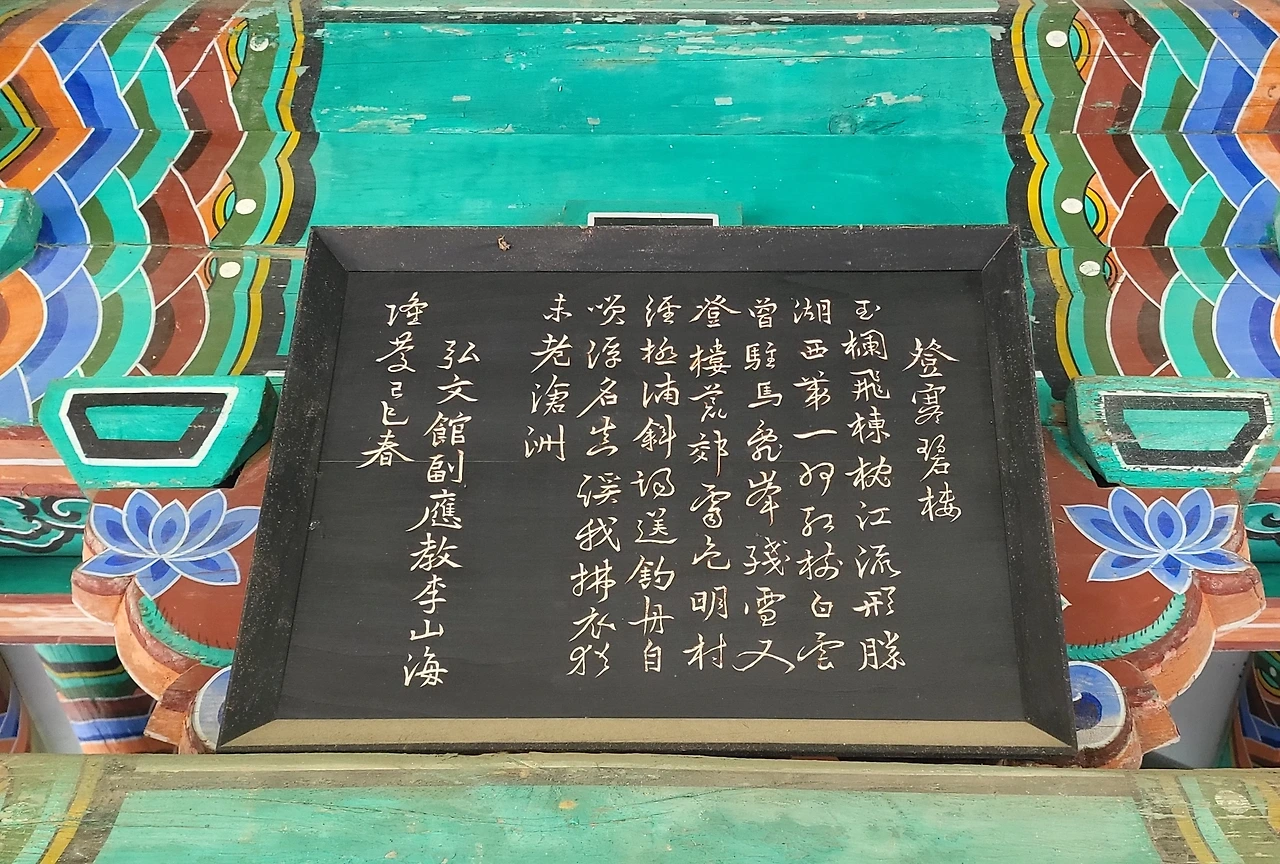 登寒碧楼
玉欄飛棟枕江流形勝
湖西第一州紅樹白雲
曾駐馬亂峯殘雪又
登樓荒郊色明村
徑極浦斜陽送釣舟自
咲浮名真誤我拂衣猶
未老滄洲
弘文館副應教李山海
隆慶己巳春